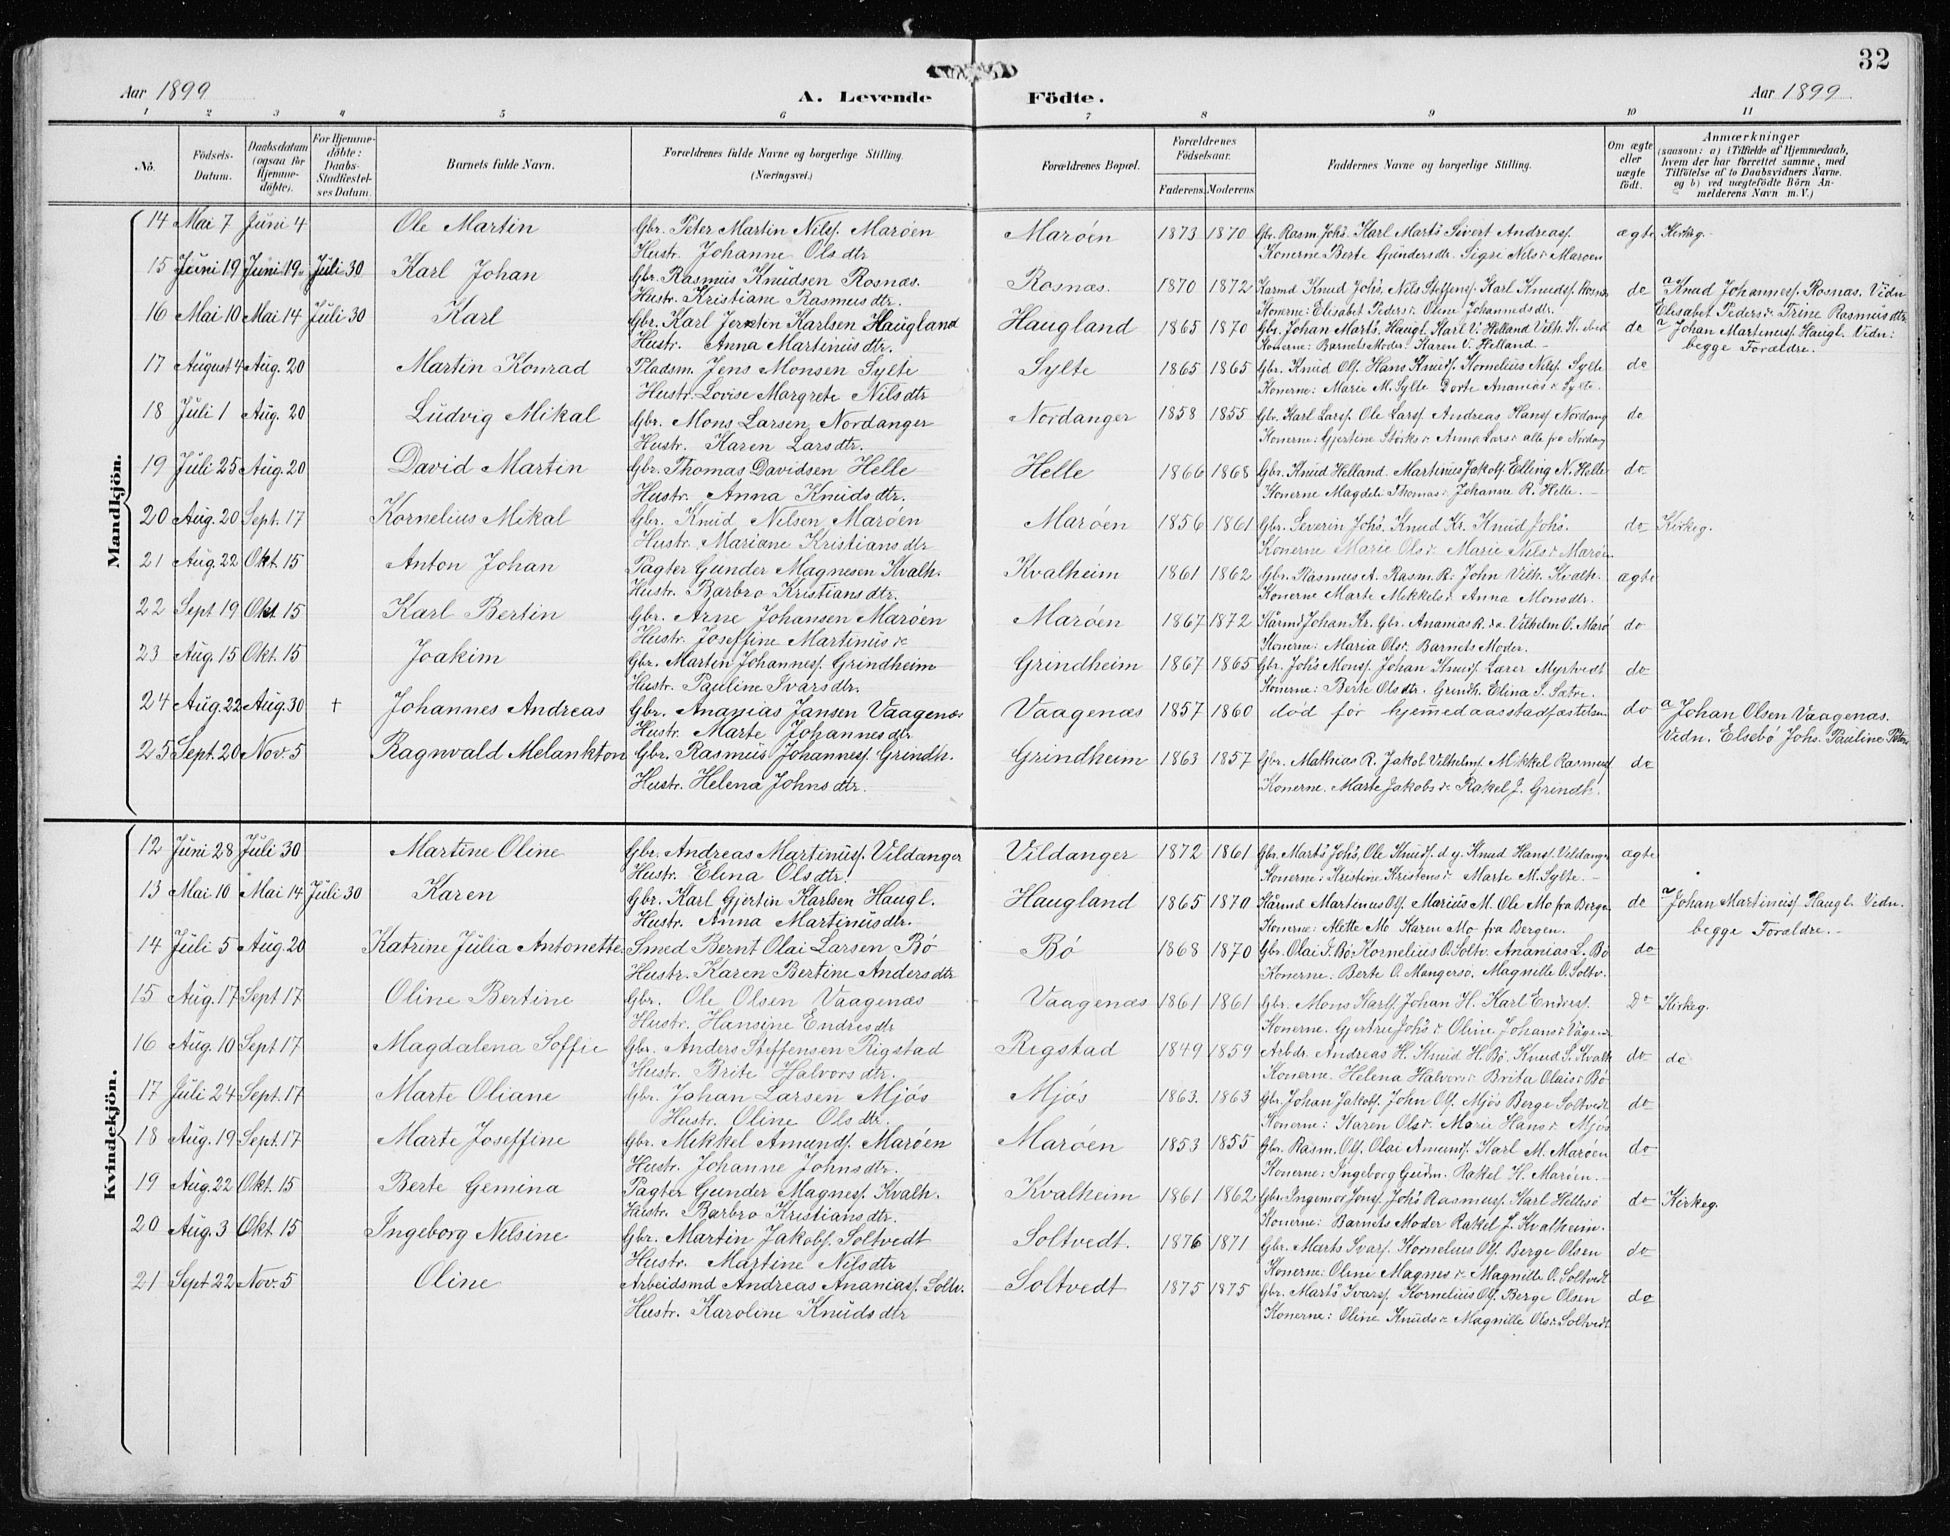 32
Aar 1899
A. Levende Födte.
Aar 1899
1 2 3 4 5 6 7 8 9 10 11
No.
Födsels-Datum.
Daabsdatum (ogsaa for Hjemme-döbte).
For Hjemme-döbte: Daabs-Stadfæstel-ses Datum.
Barnets fulde Navn.
Forældrenes fulde Navne og borgerlige Stilling. (Næringsvei.)
Forældrenes Bopæl.
Forældrenes Födselsaar.
Faderens. Moderens.
Faddernes Navne og borgerlige Stilling.
Om ægte eller uægte födt.
Anmærkninger
(saasom: a) i Tilfælde af Hjemmedaab, hvem der har forrettet samme, med Tilföielse af to Daabsvidners Navne. og b) ved uægtefödte Börn An-melderens Navn m. V.)
Mandkjön.
14 Mai 7 Juni 4 Ole Martin Gbr. Peter Martin Nilsf. Marøen Marøen 1873 1870 Gbr. Rasm. Johs. Karl Marts Sivert Andreasf. ægte Kirkeg.
Hustr. Johanne Olsdtr Konerne Berte Gundersdtr. Sigre Nilsdr Marøen
15 Juni 19 Juni 19 Juli 30 Karl Johan Gbr. Rasmus Knudsen Rosnæs. Rosnæs. 1870 1872 Karmd Knud Johs. Nils Steffens. Karl Knudsf. Rosnæs do a Knud Johannesf. Rosnæs. Vidn
Hustr. Kristiane Rasmusdtr. Konerne: Elisabet Pedersdr Oline Johannesdtr. Elisabet Pedersdr Trine Rasmusdtr
16 Mai 10 Mai 14 Juli 30 Karl Gbr. Karl Karlsen Haugland Haugland 1865 1870 Gbr. Johan Marts. Haugl. Karl V. Helland Vilh. K. ibid do a Johan Martinusf. Haugl. Vidn:
Hustr. Anna Martinusdtr. Konerne: Barnets Moder. Karen V. Helland. begge Forældre.
17 August 4 Aug. 20 Martin Konrad Pladsm. Jens Monsen Sylte Sylte 1865 1865 Gbr. Knud Olsf. Hans Knudsf. Kornelius Nilsf. Sylte do
Hustr. Lovise Margrete Nilsdtr Konerne: Marie M. Sylte Dorte Ananiasdr Sylte.
18 Juli 1 Aug. 20 Ludvig Mikal Gbr. Mons Larsen Nordanger Nordanger 1858 1855 Gbr. Karl Larsf. Ole Larsf. Andreas Hansf Nordang do
Hustr. Karen Larsdtr. Konerne: Gjertine Størksdr Anna Larsdr alle fra Nordag
19 Juli 25 Aug. 20 David Martin Gbr. Thomas Davidsen Helle Helle 1866 1868 Gbr. Knud Helland. Martinus Jakobf. Elling N. Helle do
Hustr. Anna Knudsdtr. Konerne Magdele Thomasdr Johanne R. Helle.
20 Aug. 20 Sept. 17 Kornelius Mikal Gbr. Knud Nilsen Marøen Marøen 1856 1861 Gbr. Severin Johs. Knud Kr. Knud Johs. do Kirkeg.
Hustr. Mariane Kristiansdtr Konerne Marie Olsdr Marie Nilsdr Marøen
21 Aug. 22 Okt. 15 Anton Johan Pagter Gunder Magnesen Kvalh. Kvalheim 1861 1862 Gbr. Rasmus A. Rasm. R. John Vilh. Kvalh. ægte
Hustr. Barbro Kristiansdtr. Konerne Marte Mikkelsdr Anna Monsdtr.
22 Sept 19 Okt. 15 Karl Bertin Gbr. Arne Johansen Marøen Marøen 1867 1872 Kårmd Johan Kr. Gbr. Ananias R. Vilhelm O. Marø do
Hustr. Joseffine Martinusdr Konerne: Maria Olsdr Barnets Moder.
23 Aug. 15 Okt. 15 Joakim Gbr. Martin Johannesf. Grindheim Grindheim 1867 1865 Gbr. Johs Monsf. Johan Knudsf. Lærer Myrtvedt do
Hustr. Pauline Ivarsdtr. Konerne: Berte Olsdtr. Grindh. Elina S. Sætre.
24 Aug. 22 Aug. 30 + Johannes Andreas Gbr. Ananias Jansen Vaagenæs Vaagenæs 1857 1860 død før hjemmedaasstadfæstelsen do a Johan Olsen Vaagenæs.
Hustr. Marte Johannesdtr Vidn. Elsebø Johs. Pauline
25 Sept. 20 Nov. 5 Ragnvald Melankton Gbr. Rasmus Johannesf. Grindh. Grindheim 1863 1857 Gbr. Mathias R. Jakob Vilhelmf. Mikkel Rasmusf do
Hustr. Helena Johnsdtr. Konerne. Marte Jakobsdr Rakel J. Grindh.
Kvindekjön.
12 Juni 28 Juli 30 Martine Oline Gbr. Andreas Martinusf. Vildanger Vildanger 1872 1861 Gbr. Marts Johs. Ole Knudsf. d.y. Knud Hansf. Vildanger ægte
Hustr. Elena Olsdtr. Konerne: Kristine Kristensdr Marte M. Sylte.
13 Mai 10 Mai 14 Juli 30 Karen Gbr. Karl Gjertin Karlsen Haugl. Haugland 1865 1870 Kårmd Martinus Olf. Marius M. Ole Mo fra Bergen do a Johan Martinusf Haugl. Vidn.
Hustr. Anna Martinusdtr. Konerne: Alette Mo Karen Mo fra Bergen. begge Forældre.
14 Juli 5 Aug. 20 Katrine Julia Antonette Smed Bernt Olai Larsen Bø Bø 1868 1870 Gbr. Olai S. Bø Kornelius O. Soltv. Ananias L. Bø do
Hustr. Karen Bertine Andersdtr Konerne: Berte O. Mangersø. Magnille O. Soltv.
15 Aug. 17 Sept 17 Oline Bertine Gbr. Ole Olsen Vaagenæs Vaagenæs 1861 1861 Gbr. Mons Karlf. Johan H. Karl Endresf. Do Kirkeg.
Hustr. Hansine Endresdtr Konerne. Gjertru Johsdr Oline Johansdr
16 Aug. 10 Sept 17 Magdalena Soffie Gbr. Anders Steffensen Rigstad Rigstad 1849 1859 Arbdr. Andreas H. Knud H. Bø. Knud S. Kvalh do do
Hustr. Brite Halvorsdtr. Konerne. Helena Halvorsdr Brita Olaisdr Bø
17 Juli 24 Sept. 17 Marte Oliane Gbr. Johan Larsen Mjøs Mjøs 1863. 1863 Gbr. Johan Jakobf. John Olf. Mjøs Berge Soltvedt do
Hustr. Oline Olsdtr. Konerne: Karen Olsdr Marie Hansdr Mjøs
18 Aug. 19 Sept. 17 Marte Joseffine Gbr. Mikkel Amundsf. Marøen Marøen 1853 1855 Gbr. Rasm. Olf. Olai Amundsf. Karl M. Marøen do
Hustr. Johanne Johnsdtr. Konerne: Ingeborg Gudm. Rakel H. Marøen.
19 Aug. 22 Okt. 15 Berte Gemina Pagter Gunder Magnesf. Kvalh. Kvalheim 1861 1862 Gbr. Ingemor Jonsf. Johs Rasmusf. Karl Hellesø do Kirkeg.
Hustr. Barbro Kristiansdtr. Konerne: Barnets Moder Rakel L. Kvalheim.
20 Aug. 3 Okt. 15 Ingeborg Nilsine Gbr. Martin Jakobf. Soltvedt Soltvedt. 1876 1871 Gbr. Marts Ivarsf. Kornelius Olf. Berge Olsen do
Hustr. Martine Nilsdtr Konerne: Oline Magnesdr Magnille O. Soltvedt
21 Sept 22 Nov. 5 Oline Arbeidsmd Andreas Ananiasf. Soltv. Soltvedt 1875 1875 Gbr. Marts Ivarsf. Kornelius Olf. Berge Olsen do
Hustr. Karoline Knudsdtr Konerne: Oline Knudsdr Magnille Olsdr Soltvedt